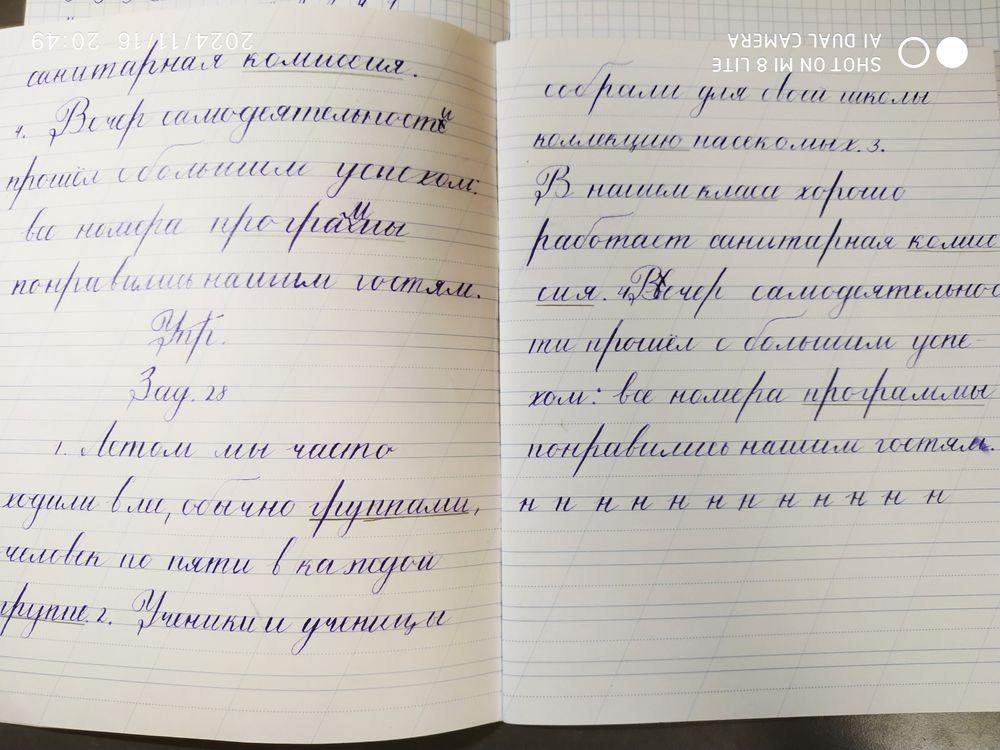 санитарная комиссия.
4. Вечер самодеятельности
прошёл с большим успехом:
все номера программы
понравились нашим гостям.
Упр.
Зад. 28
1. Летом мы часто
ходили в ле, обычно группами,
человек по пяти в каждой
группе. 2. Ученики и ученицы
собрали для свой школы
коллекцию насекомых. 3.
В нашем классе хорошо
работает санитарная комис
сия. 4. Вечер самодеятельнос
ти прошёл с большим успе-
хом: все номера программы
понравились нашим гостям.
н н н н н н н н н н н н
2024/11/16 20:49
SHOT ON MI 8 LITE
AI DUAL CAMERA